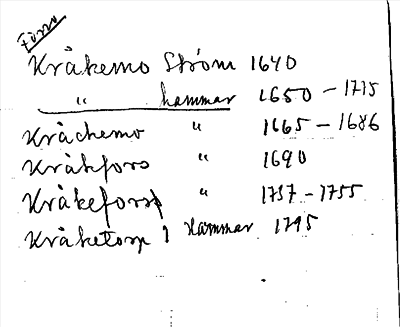 Förro
Kråkemo Ström 1640
" hammar 1650 - 1775
Kråchemo " 1665 - 1686
Kråkfors " 1690
Kråkeforss " 1737 - 1755
Kråketorp 1 Hammar 1795